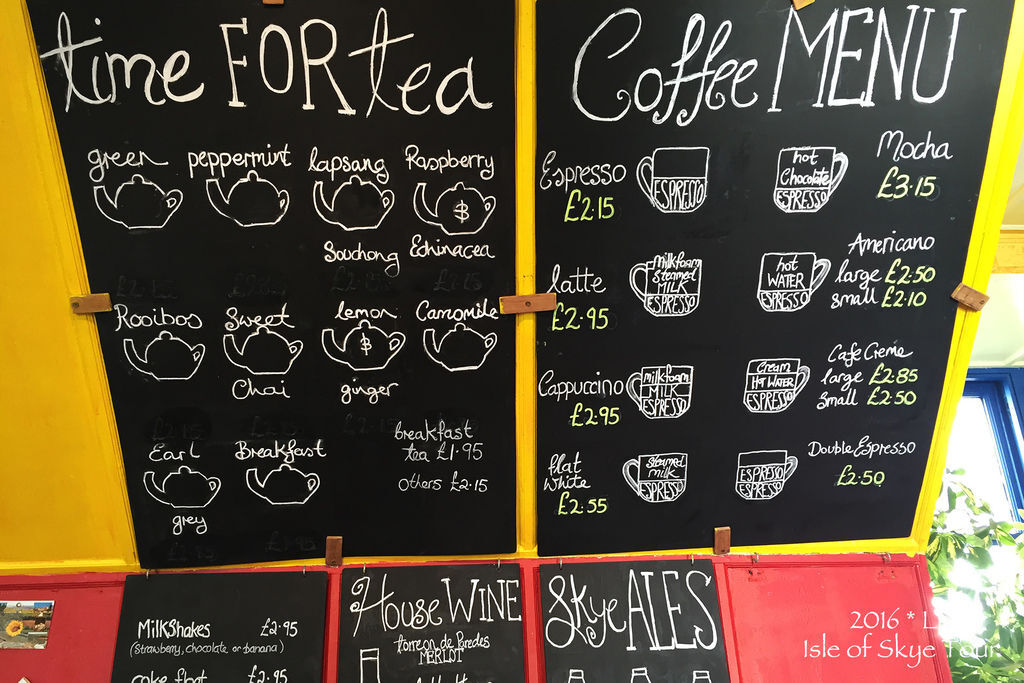 time FOR tea
green peppermint lapsang Raspberry
Souchong Echinacea
Rooibos Sweet lemon Camomile
Chai ginger
Earl Breakfast
grey
breakfast
tea £1.95
others £2.15
Coffee MENU
Espresso
£2.15
ESPRESSO
hot
Chocolate
ESPRESSO
Mocha
£3.15
latte
£2.95
milkfoam
steamed
MILK
ESPRESSO
hot
WATER
ESPRESSO
Americano
large £2.50
small £2.10
Cappuccino
£2.95
milkfoam
MILK
ESPRESSO
Cream
HOT WATER
ESPRESSO
Cafe Creme
large £2.85
small £2.50
flat
white
£2.55
steamed
milk
ESPRESSO
ESPRESSO
ESPRESSO
Double Espresso
£2.50
MilkShakes £2.95
(Strawberry, chocolate or banana)
coke float £2.95
House WINE
torreon de Paredes
MERLOT
Skye ALES
2016 *
Isle of Skye Tour